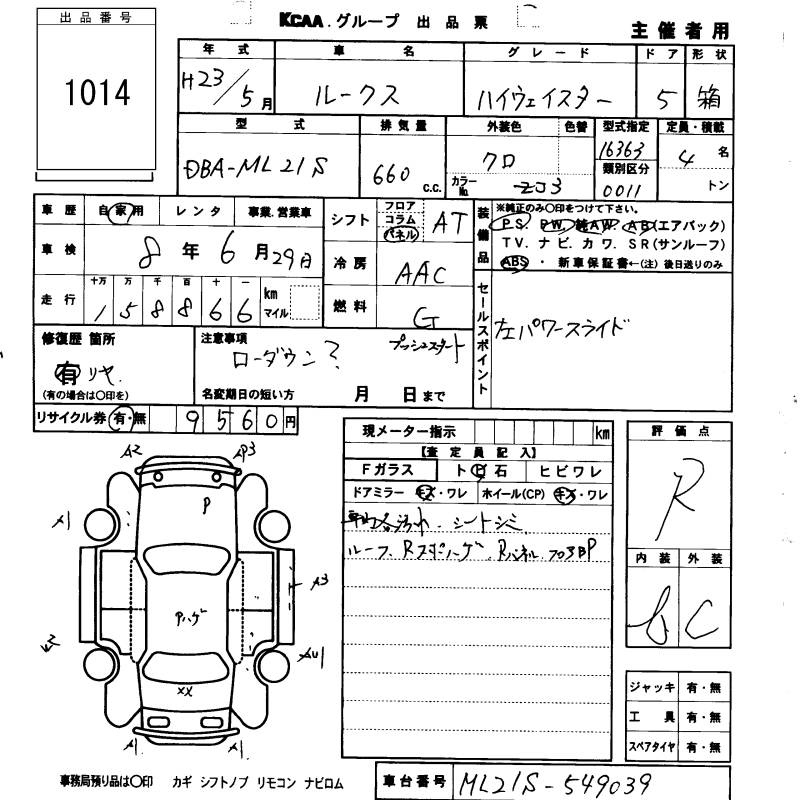 出品番号
1014
KCAA.グループ 出品票
主催者用
年式 車名 グレード ドア 形状
H23/5月 ルークス ハイウェイスター 5 箱
型式 排気量 外装色 色替 型式指定 定員・積載
DBA-ML21S 660 C.C. クロ 16363 4 名
カラーNo. ZJ3 類別区分 0011 トン
車歴 自家用 レンタ 事業.営業車
車検 8年6月29日
走行 十万 万 千 百 十 一 km マイル
1 5 8 8 6 6
シフト フロア コラム パネル AT
冷房 AAC
燃料 G
装備品
※純正のみ〇印をつけて下さい。
PS. PW. 純AW. AB(エアバック)
TV. ナビ. カワ. SR(サンルーフ)
ABS ・ 新車保証書←(注) 後日送りのみ
セールスポイント
左パワースライド
修復歴 箇所
有 リヤ.
(有の場合は〇印を)
注意事項 プッシュスタート
ローダウン?
名変期日の短い方 月 日まで
リサイクル券 有・無 9560円
現メーター指示 km
【査定員記入】
Fガラス ト ビ 石 ヒビワレ
ドアミラー キズ・ワレ ホイール(CP) キズ・ワレ
シートシミ
ルーフ
評価点
R
内装 外装
C
A2 AP3
P
A1
A3
Pハゲ
XX
A1 A1
ジャッキ 有・無
工具 有・無
スペアタイヤ 有・無
事務局預り品は〇印 カギ シフトノブ リモコン ナビロム
車台番号 ML21S-549039